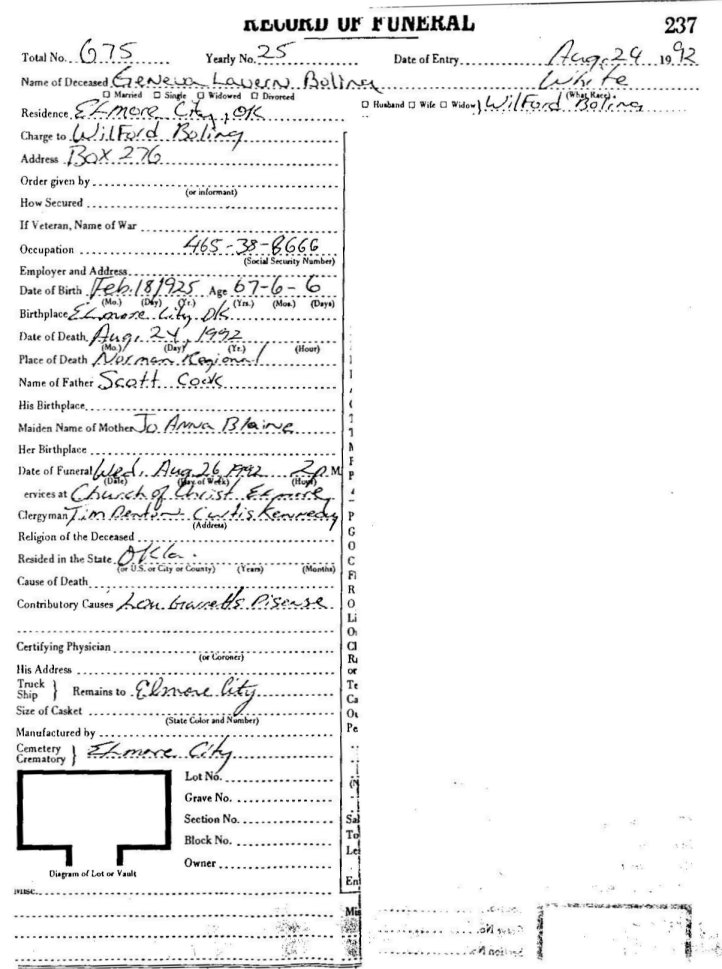 RECORD OF FUNERAL 237
Total No. 675 Yearly No. 25 Date of Entry Aug. 24 1992
Name of Deceased Geneva Lavern Boling White
☐ Married ☐ Single ☐ Widowed ☐ Divorced (What Race)
Residence Elmore City, OK ☐ Husband ☐ Wife ☐ Widow } Wilford Boling
Charge to Wilford Boling
Address Box 276
Order given by
(or informant)
How Secured
If Veteran, Name of War
Occupation 465-38-8666
(Social Security Number)
Employer and Address
Date of Birth Feb. 18 1925 Age 67-6-6
(Mo.) (Day) (Yr.) (Yrs.) (Mos.) (Days)
Birthplace Elmore City OK
Date of Death Aug. 24, 1992
(Mo.) (Day) (Yr.) (Hour)
Place of Death Norman Regional
Name of Father Scott Cook
His Birthplace
Maiden Name of Mother Jo Anna Blaine
Her Birthplace
Date of Funeral Wed, Aug. 26 1992 2 P M
(Date) (Day of Week) (Hour)
ervices at Church of Christ, Elmore
Clergyman Tim Denton Curtis Kennedy
(Address)
Religion of the Deceased
Resided in the State Okla.
(or U.S. or City or County) (Years) (Months)
Cause of Death
Contributory Causes Lou Disease
Certifying Physician
(or Coroner)
His Address
Truck
Ship } Remains to Elmore City
Size of Casket
(State Color and Number)
Manufactured by
Cemetery
Crematory } Elmore City
Lot No.
Grave No.
Section No.
Block No.
Owner
Diagram of Lot or Vault